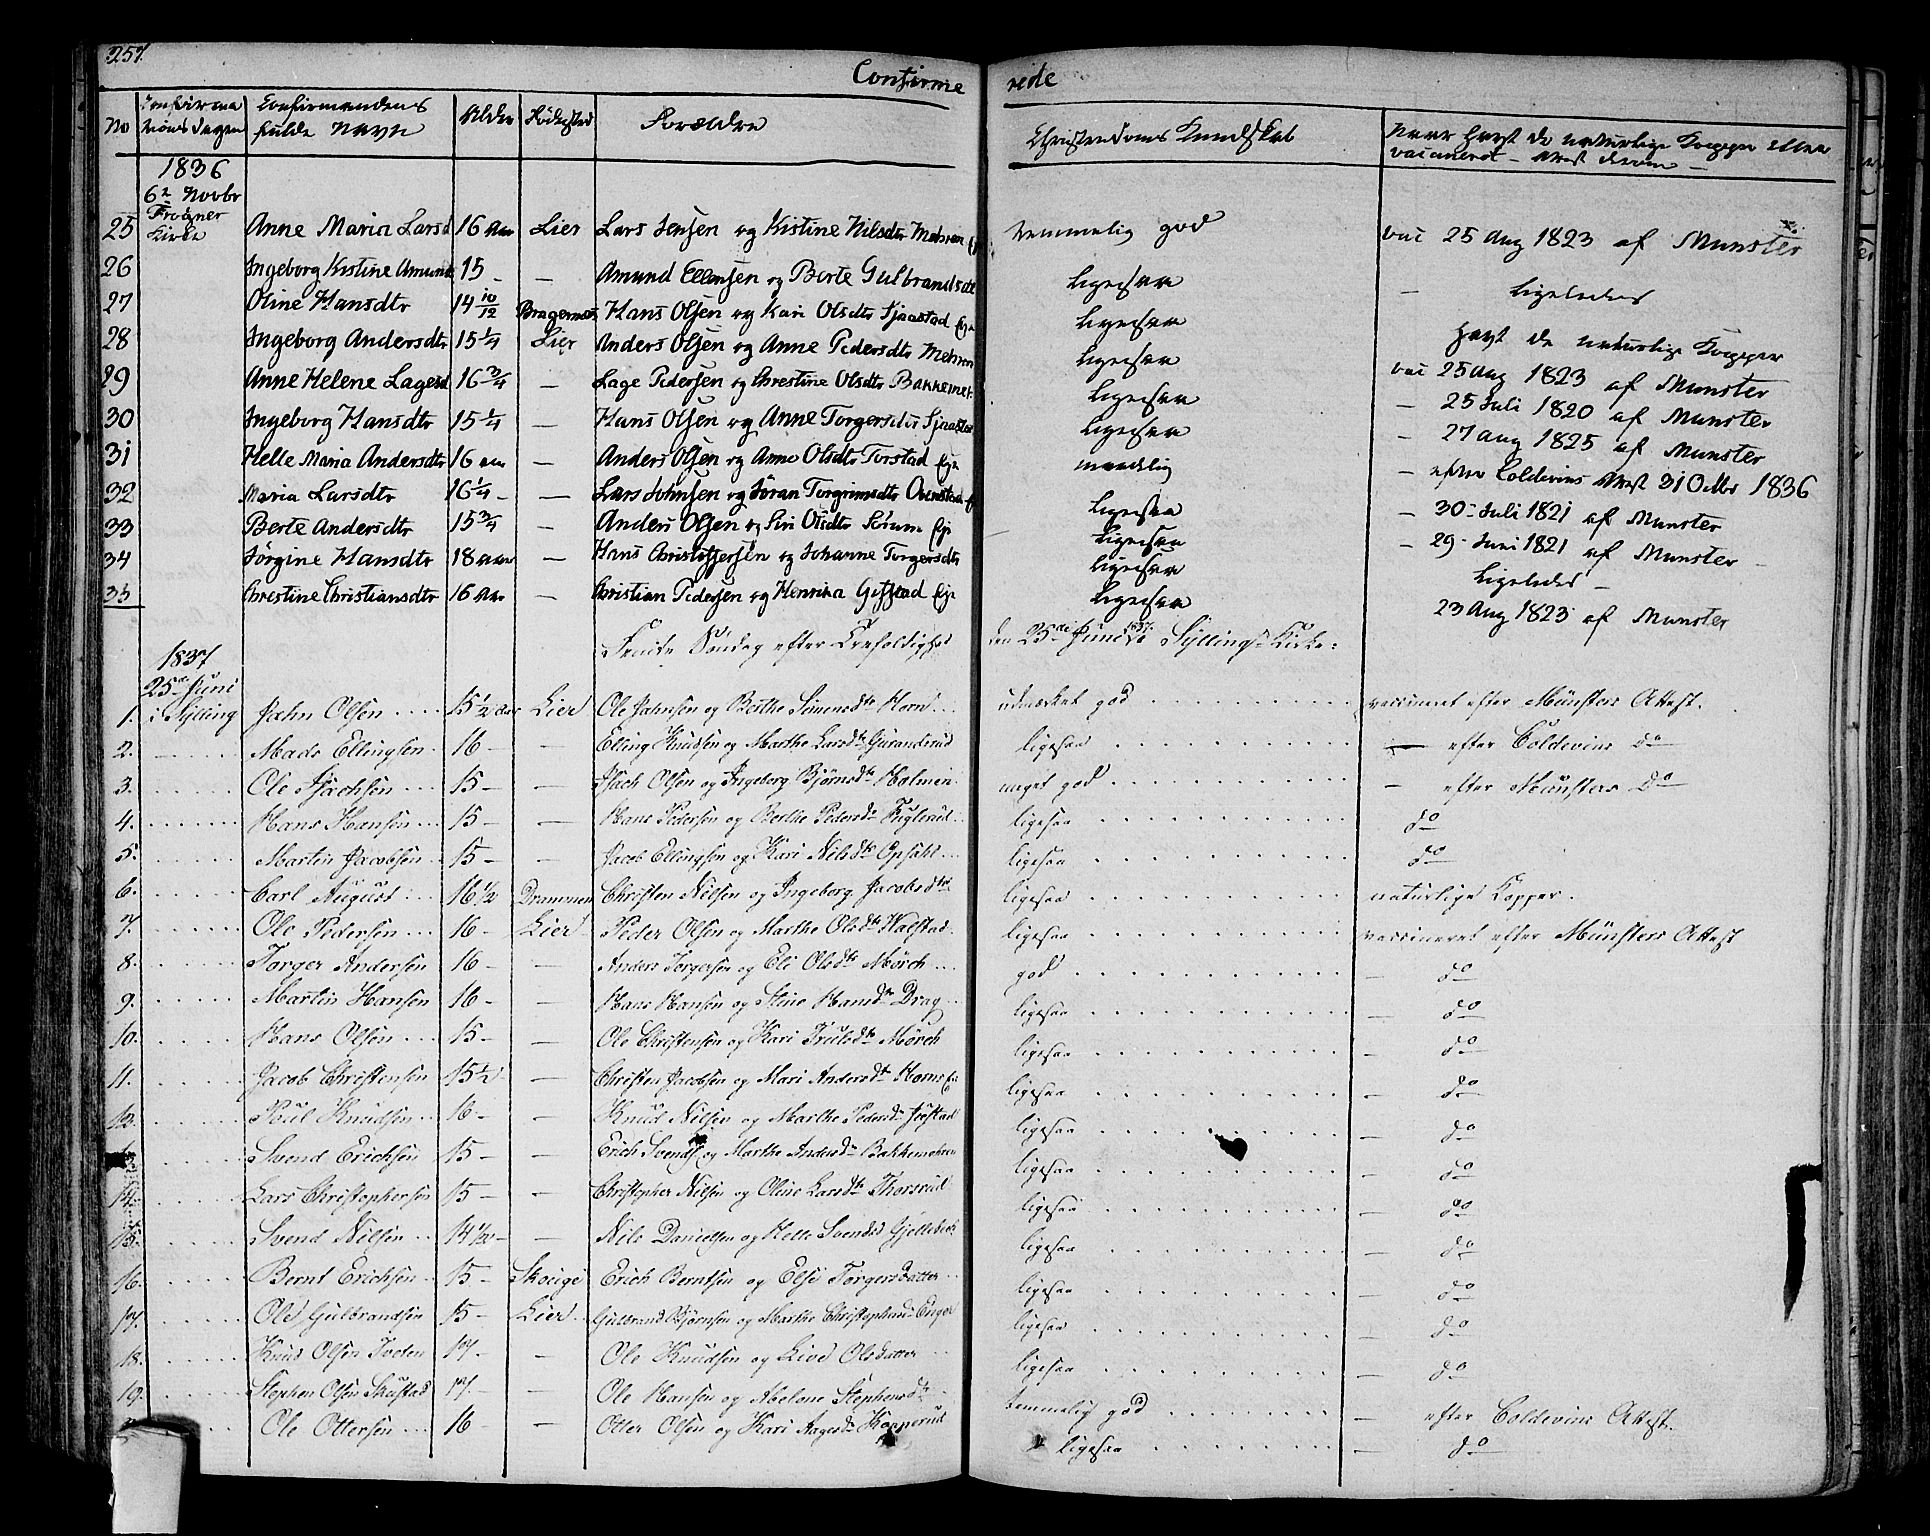 257.
Confirmerede
No Confirmationsdagen Confirmandens fulde Navn Alder Fødested Forældre Christendoms Kundskab Naar havt de naturlige Kopper eller vaccineret – Attest derom –
1836
6te Novbr
Frogner
Kirke
25 Anne Maria Larsd 16 Aar Lier Lars Jensen og Kistine Nilsdtr Mehren temmelig god vac 25 Aug 1823 af Munster
26 Ingeborg Kistine Amunds 15 – — Amund Ellensen og Berte Gulbrandsdtr Ligesaa – Ligeledes
27 Oline Hansdtr 14 10/12 Bragernæs Hans Olsen og Kari Olsdtr Sjaastad Eje Ligesaa havt de naturlige Kopper
28 Ingeborg Andersdtr 15 1/4 Lier Anders Olsen og Anne Pedersdtr Mehren Ligesaa vac 25 Aug 1823 af Munster
29 Anne Helene Lagesd 16 3/4 — Lage Pedersen og Chrestine Olsdtr Bakkemet Ligesaa – 25 Juli 1820 af Munster
30 Ingeborg Hansdtr 15 1/4 — Hans Olsen og Anne Torgersdtr Sjaastad Ligesaa – 27 Aug 1825 af Munster
31 Helle Maria Andersdtr 16 aar — Anders Olsen og Anne Olsdtr Torstad Eje maadelig – efter Coldevins Attest 31 Octbr 1836
32 Maria Larsdtr 16 1/4 – — Lars Johnsen og Jøran Torgrimsdtr Ovenstad Ligesaa – 30 Juli 1821 af Munster
33 Berte Andersdtr 15 3/4 — Anders Olsen og Siri Olsdtr Sørum Eje Ligesaa – 29 Juni 1821 af Munster
34 Jørgine Hansdtr 18 aar — Hans Christophersen og Johanne Torgersdtr Ligesaa Ligeledes –
35 Chrestine Christiansdtr 16 Aar — Christian Pedersen og Henrika Gifstad Eje Ligesaa 23 Aug 1823 af Munster
Femte Søndag efter Trefoldighed den 25de Juni 1837 i Sylling Kirke:
1837
25de Juni
1. i Sylling John Olsen 15 1/2 Aar Lier Ole Johnsen og Berthe Simensdtr Horn udmærket god vaccineret efter Münsters Attest.
2. Mads Ellingsen 16 – — Elling Knudsen og Marthe Larsdtr Guranderud ligesaa — efter Coldevins do
3. Ole Isachsen 15 – — Isach Olsen og Ingeborg Bjørnsdtr Holmen meget god – efter Münsters do
4. Hans Hansen 15 – — Hans Pedersen og Berthe Pedersdr Fuglerud ligesaa do
5. Martin Jacobsen 15 – — Jacob Ellingsen og Kari Nilsdtr Opsahl ligesaa do
6. Carl August 16 1/2 Drammen Christen Nilsen og Ingeborg Jacobsdtr ligesaa naturlige Kopper.
7. Ole Pedersen 16 – Lier Peder Olsen og Marthe Olsdtr Kaelstad ligesaa vaccineret efter Münsters Attest
8. Torger Andersen 16 – — Anders Torgersen og Eli Olsdtr Mörch god – do
9. Martin Hansen 16 – — Hans Hansen og Stine Hansdtr Drag ligesaa – do
10. Hans Olsen 15 – — Ole Christensen og Kari Trulsdtr Mörch ligesaa – do
11. Jacob Christensen 15 1/2 – — Christen Jacobsen og Mari Andersdtr Horns Eie ligesaa – do
12. Poul Knudsen 16 – — Knud Nilsen og Marthe Pedersdr Justad ligesaa – do
Svend Erichsen 15 – — Erich Svends og Marthe Andersdr Bakkemehren ligesaa – do
14. Lars Christophersen 15 – — Christopher Nilsen og Oline Larsdtr Thorsrud ligesaa – do
15. Svend Nilsen 14 1/2 – — Nils Danielsen og Helle Svendsd Gjellebek ligesaa – do
16. Bernt Erichsen 15 – Skouge Erich Berntsen og Elsi Torgersdatter ligesaa – do
17. Ole Gulbrandsen 15 – Lier Gulbrand Bjørnsen og Marthe Christophersd Enger ligesaa – do
18. Knud Olsen Joden 17 – — Ole Knudsen og Live Olsdatter ligesaa – do
19. Stephen Olsen Skustad 17 – — Ole Hansen og Abelone Stephensdtr temmelig god – efter Coldevins Attest.
Ole Ottersen 16 — Otter Olsen og Kari Aagesdr Kopperud ligesaa – do